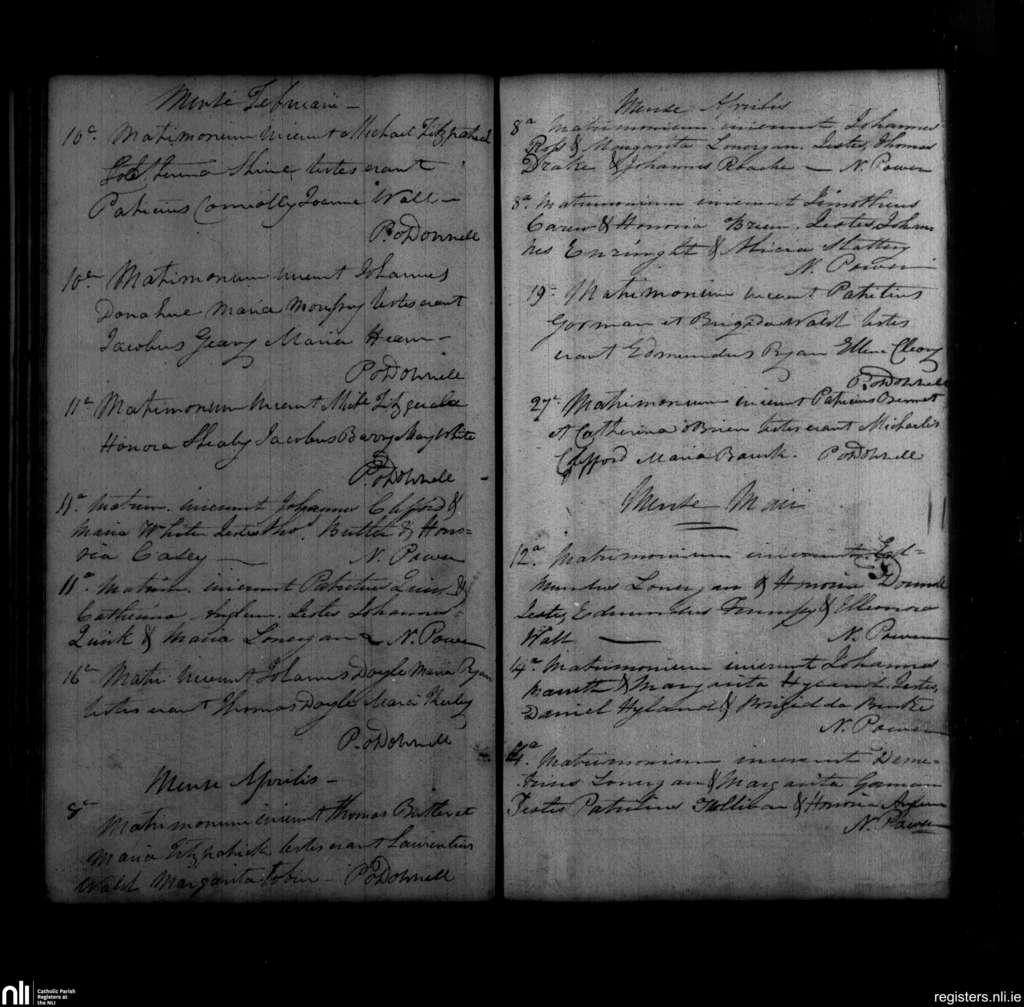 Mense Februarii -
10a Matrimonium inierunt Michael Fitzpatrick
Shine testes erant
Patricius Connolly Joanna Wall -
P. O'Donnell
10a Matrimonium inierunt Johannes
Donahue Maria testes erant
Jacobus Geary Maria Hearn -
P. O'Donnell
11a Matrimonium inierunt Mich Fitzgerald
Honora Shealy Jacobus Barry Mary White
P. O'Donnell
11a Matrim. inierunt Johannes Clifford &
Maria White Testes Tho. Butler & Hono-
ria Casey - N. Power
11a Matrim. inierunt Patritius Quirk &
Catherina Anglim. Testes Johannes
Quirk & Maria Lonergan - N. Power
16a Matri inierunt Johannes Doyle Maria Ryan
testes erant Thomas Doyle Maria
P. O'Donnell
Mense Aprilis -
8a
Matrimonium inierunt Thomas Butler et
Maria Fitzpatrick testes erant Laurentius
Walsh Margarita Tobin - P. O'Donnell
Mense Aprilis
8a Matrimonium inierunt Johannes
Ross & Margarita Lonorgan. Testes, Thomas
Drake & Johannes Roache - N. Power
8a Matrimonium inierunt Timotheus
Carew & Honoria Brien. Testes, Johan
nes Enright & Alicia Slattery
N. Power
19- Matrimonium inierunt Patritius
Gorman et Brigida Walsh testes
erant Edmundus Ryan Ellen Cleary
P. O'Donnell
27a Matrimonium inierunt Patricius Bennet
et Catherina O'Brien testes erant Michaelis
Clifford Maria P. O'Donnell
Mense Maii
12a. Matrimonium inierunt Ed-
mundus Lonergan & Honoria
Testes, Edmundus & Elleonora
Wall - N. Power
14a Matrimonium inierunt Johannes
& Margarita Hyland. Testes,
Daniel Hyland & Brigidda Burke
N. Power
14a. Matrimonium inierunt Deme-
trius Lonergan & Margarita Gorman
Testes Patritius & Honoria
N. Power
nli
Catholic Parish
Registers at
the NLI
registers.nli.ie